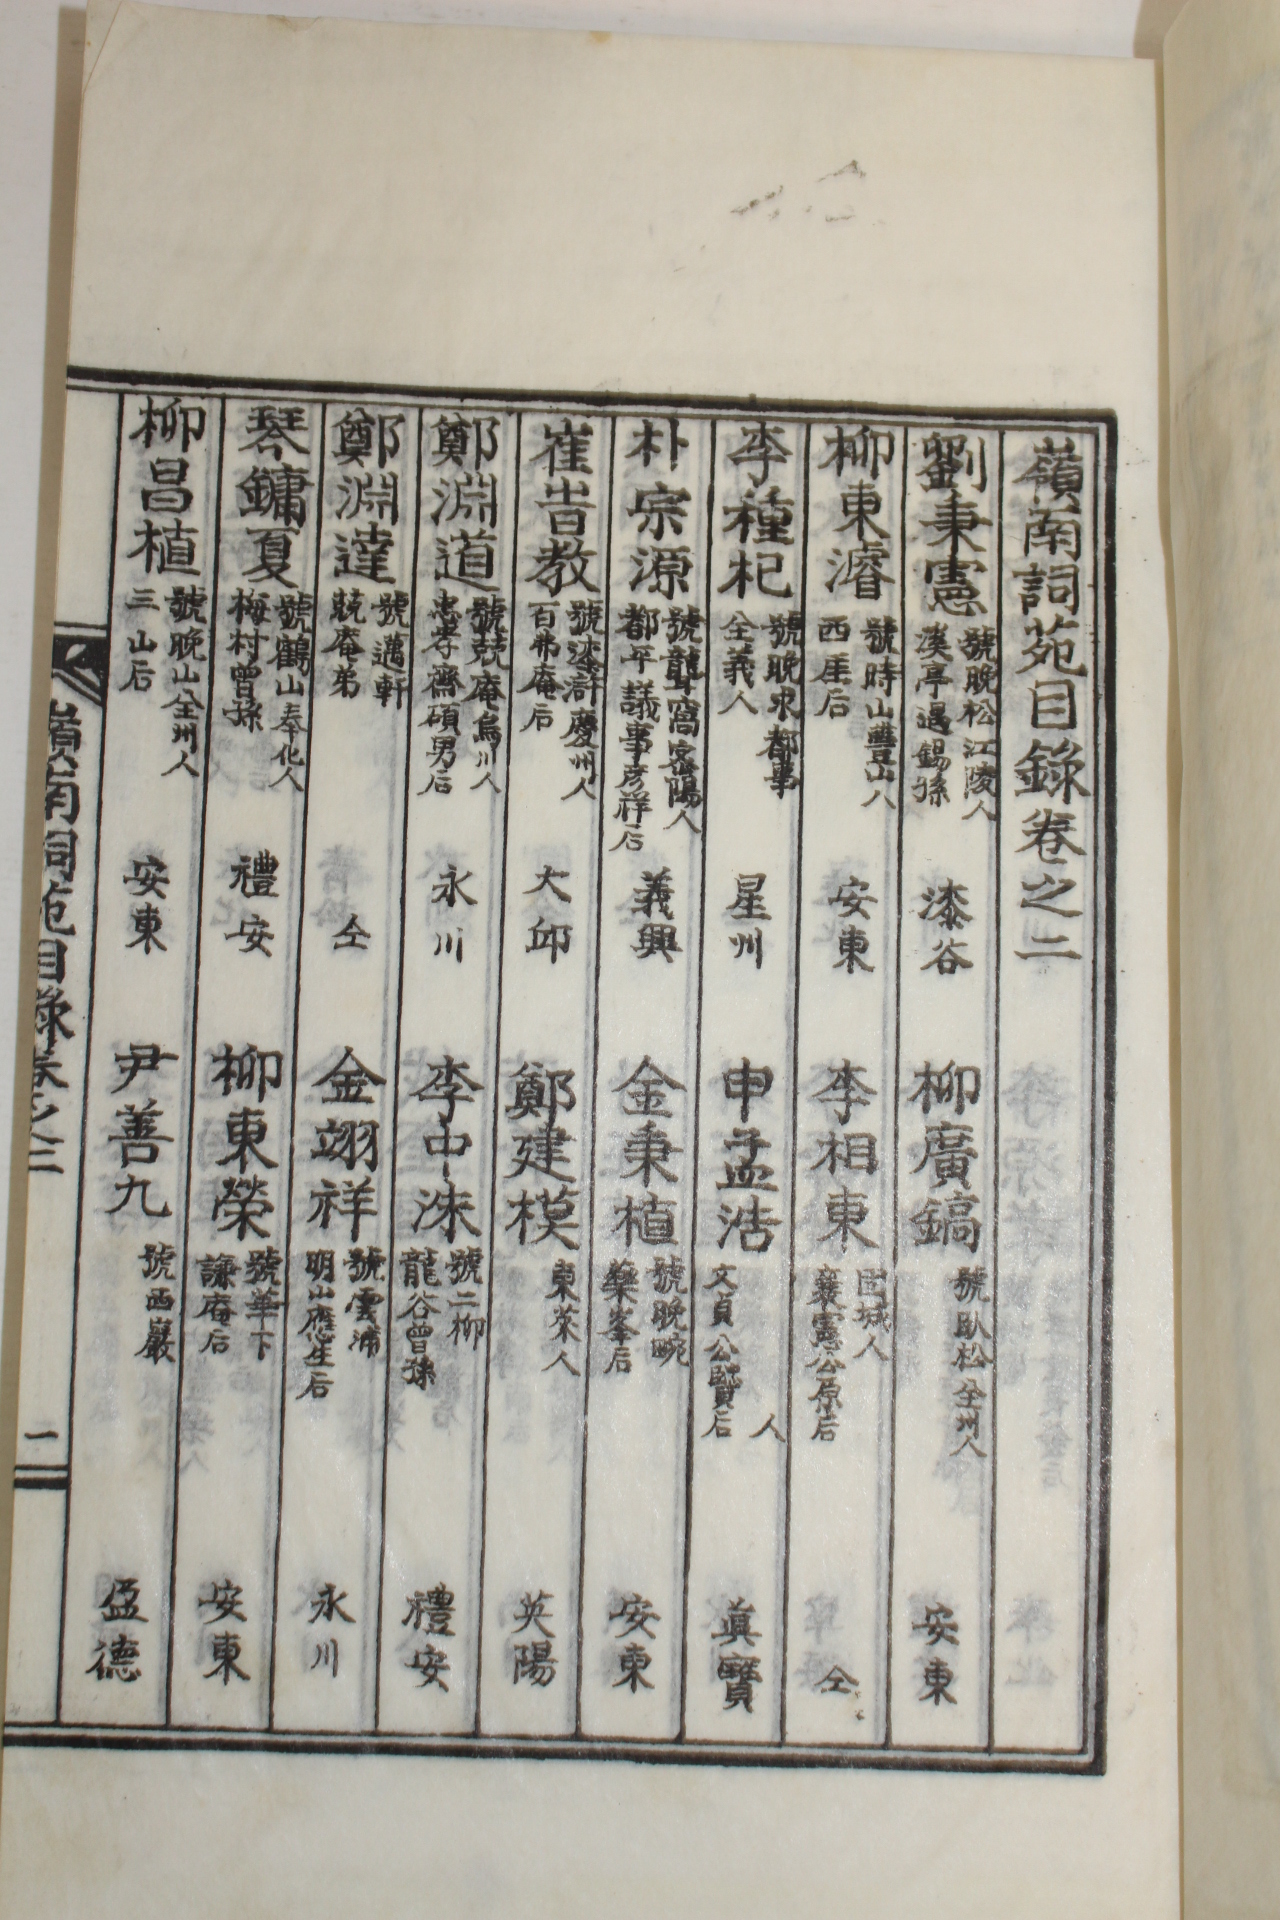 嶺南詞苑目錄卷之二
劉秉憲 號晚松江陵人 漢亭遇錫孫 漆谷 柳廣鎬 號臥松全州人 安東
柳東濬 號時山豊山人 西厓后 安東 李相東 固城人 襄憲公原后 仝
李種杞 號晚求都事 全義人 星州 申孟浩 人 文貞公賢后 眞寶
朴宗源 號龍窩密陽人 都平議事彦祥后 義興 金秉植 號晚畹 藥峯后 安東
崔旹教 號逑滸慶州人 百弗庵后 大邱 鄭建模 東萊人 英陽
鄭淵道 號兢庵烏川人 忠孝齋碩男后 永川 李中洙 號二柳 龍谷曾孫 禮安
鄭淵達 號邁軒 兢庵弟 仝 金翊祥 號雲浦 明山應生后 永川
琴鏞夏 號鶴山奉化人 梅村曾孫 禮安 柳東榮 號華下 謙庵后 安東
柳昌植 號晚山全州人 三山后 安東 尹善九 號西巖 盈德
嶺南詞苑目錄卷之二 一